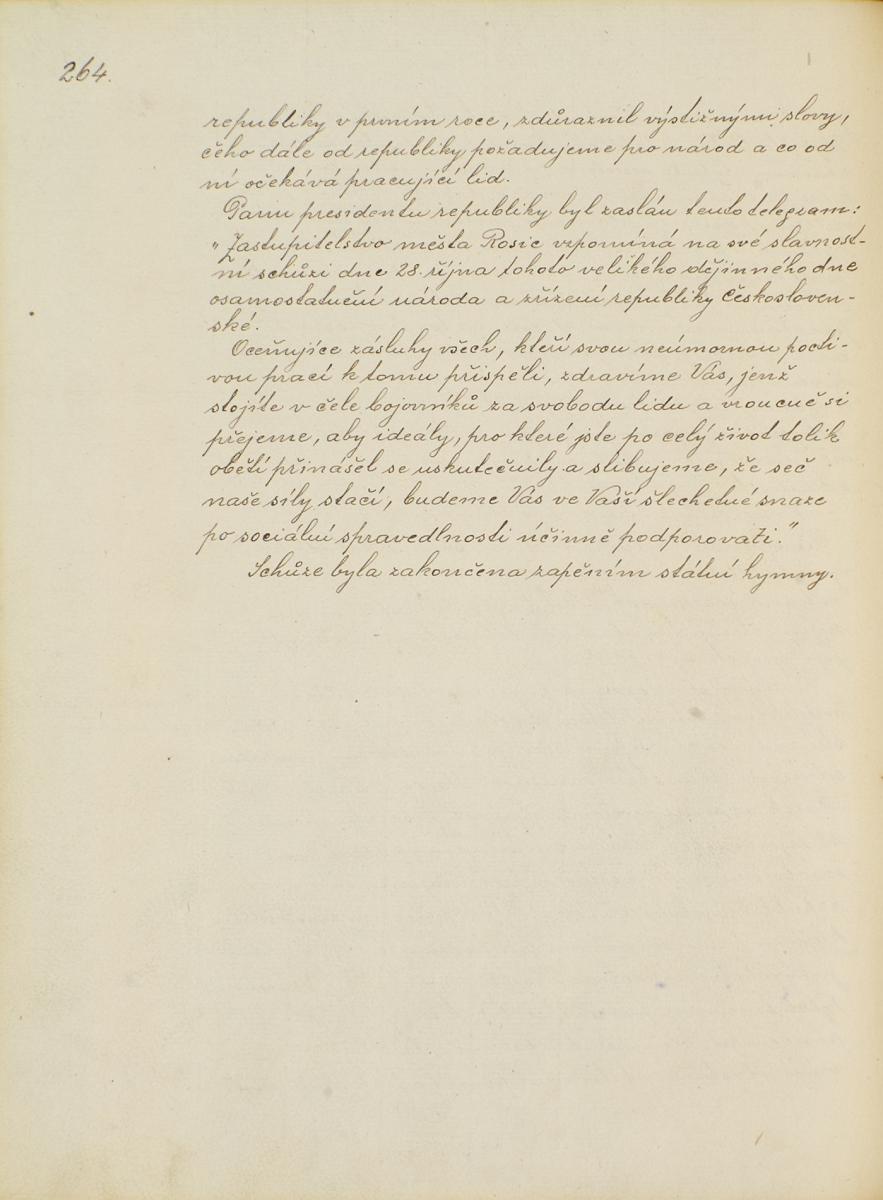 264.
republiky v prvním roce, zdůraznil výstižnými slovy,
čeho dále od republiky požadujeme pro národ a co od
ní očekává pracující lid.
Panu presidentu republiky byl zaslán tento telegram:
„Zastupitelstvo města Rosic vzpomíná na své slavnost-
ní schůzi dne 28. října tohoto velikého dějinného dne
osamostatnění národa a zřízení republiky českosloven-
ské.
Oceňujíce zásluhy všech, kteří svou neúmornou pocti-
vou prací k tomu přispěli, zdravíme Vás, jenž
stojíte v čele bojovníků za svobodu lidu a vroucně si
přejeme, aby ideály, pro které jste po celý život tolik
obětí přinášel se uskutečnily a slibujeme, že seč
naše síly stačí, budeme Vás ve Vaší šlechetné snaze
po sociální spravedlnosti účinně podporovati."
Schůze byla zakončena zapěním státní hymny.